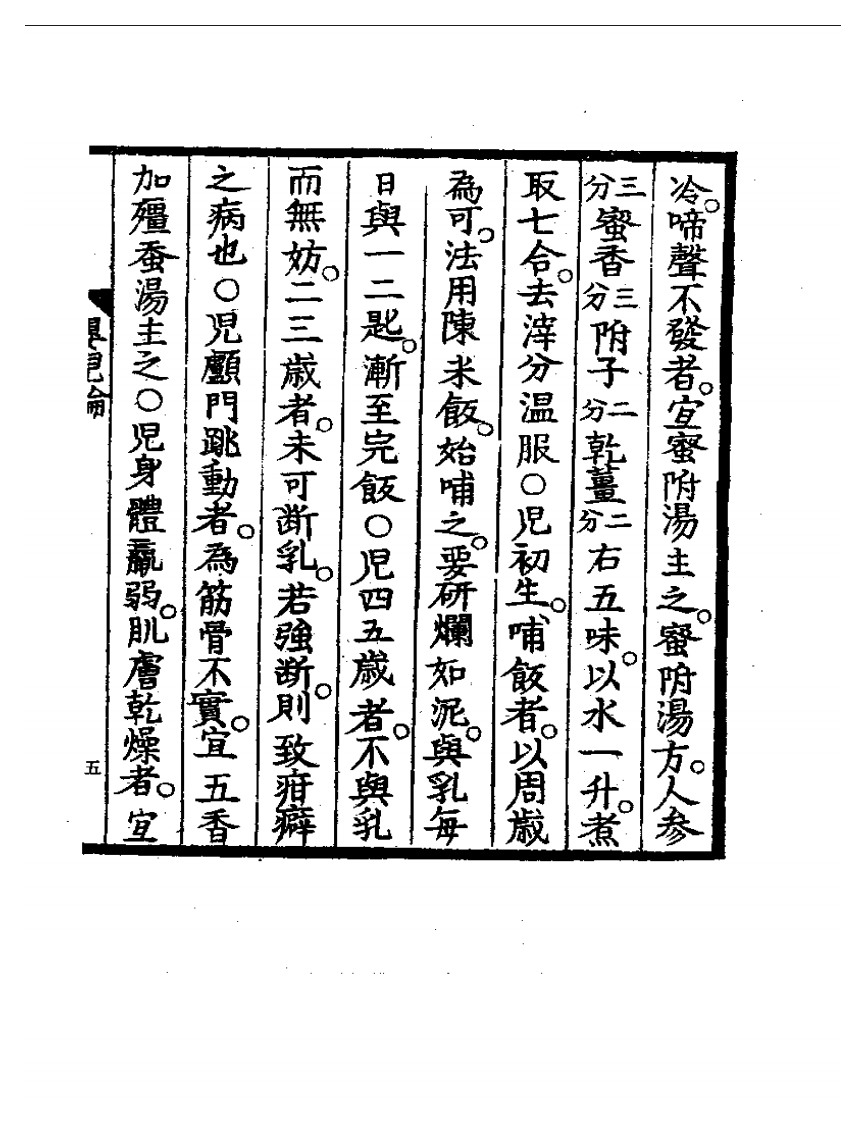 冷。啼聲不發者。宜蜜附湯主之。蜜附湯方。人参
三分蜜香三分附子二分乾薑二分右五味。以水一升。煮
取七合。去滓分温服○児初生。哺飯者。以周歳
為可。法用陳米飯。始哺之。要研爛如泥。與乳毎
日與一二匙。漸至完飯○児四五歳者。不與乳
而無妨。二三歳者。未可断乳。若強断。則致疳癖
之病也○児顱門跳動者。為筋骨不實。宜五香
加殭蚕湯主之○児身體羸弱。肌膚乾燥者。宜
五